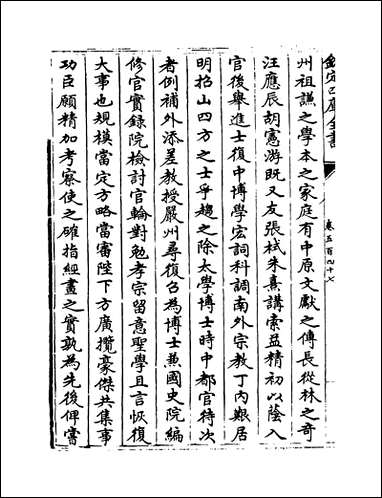 欽定四庫全書
卷五百九十七
州祖謙之學本之家庭有中原文獻之傳長從林之奇
汪應辰胡憲游既又友張栻朱熹講索益精初以蔭入
官後舉進士復中博學宏詞科調南外宗教丁內艱居
明招山四方之士爭趨之除太學博士時中都官待次
者例補外添差教授嚴州尋復召為博士兼國史院編
修官實錄院檢討官輪對勉孝宗留意聖學且言恢復
大事也規模當定方略當審陛下方廣攬豪傑共集事
功臣願精加考察使之確指經畫之實孰為先後俾嘗